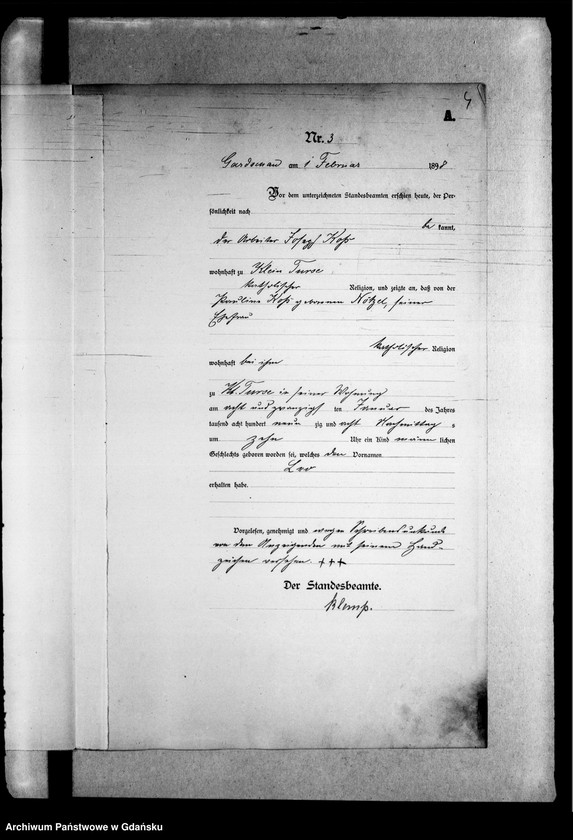 4
A.
Nr. 3
Gardschau am 1 Februar 1898
Vor dem unterzeichneten Standesbeamten erschien heute, der Per-
sönlichkeit nach
be kannt,
der Arbeiter Joseph Koß
wohnhaft zu Klein Turse
katholischer Religion, und zeigte an, daß von der
Pauline Koß geborenen Nötzel, seiner
Ehefrau
katholischer Religion
wohnhaft bei ihm
zu Kl. Turse in seiner Wohnung
am acht und zwanzigsten Januar des Jahres
tausend acht hundert neun zig und acht Nachmittags
um zehn Uhr ein Kind männlichen
Geschlechts geboren worden sei, welches den Vornamen
Leo
erhalten habe.
Vorgelesen, genehmigt und wegen Schreibensunkunde
von dem Anzeigenden mit seinem Hand-
zeichen versehen. +++
Der Standesbeamte.
Klemp.
Archiwum Państwowe w Gdańsku